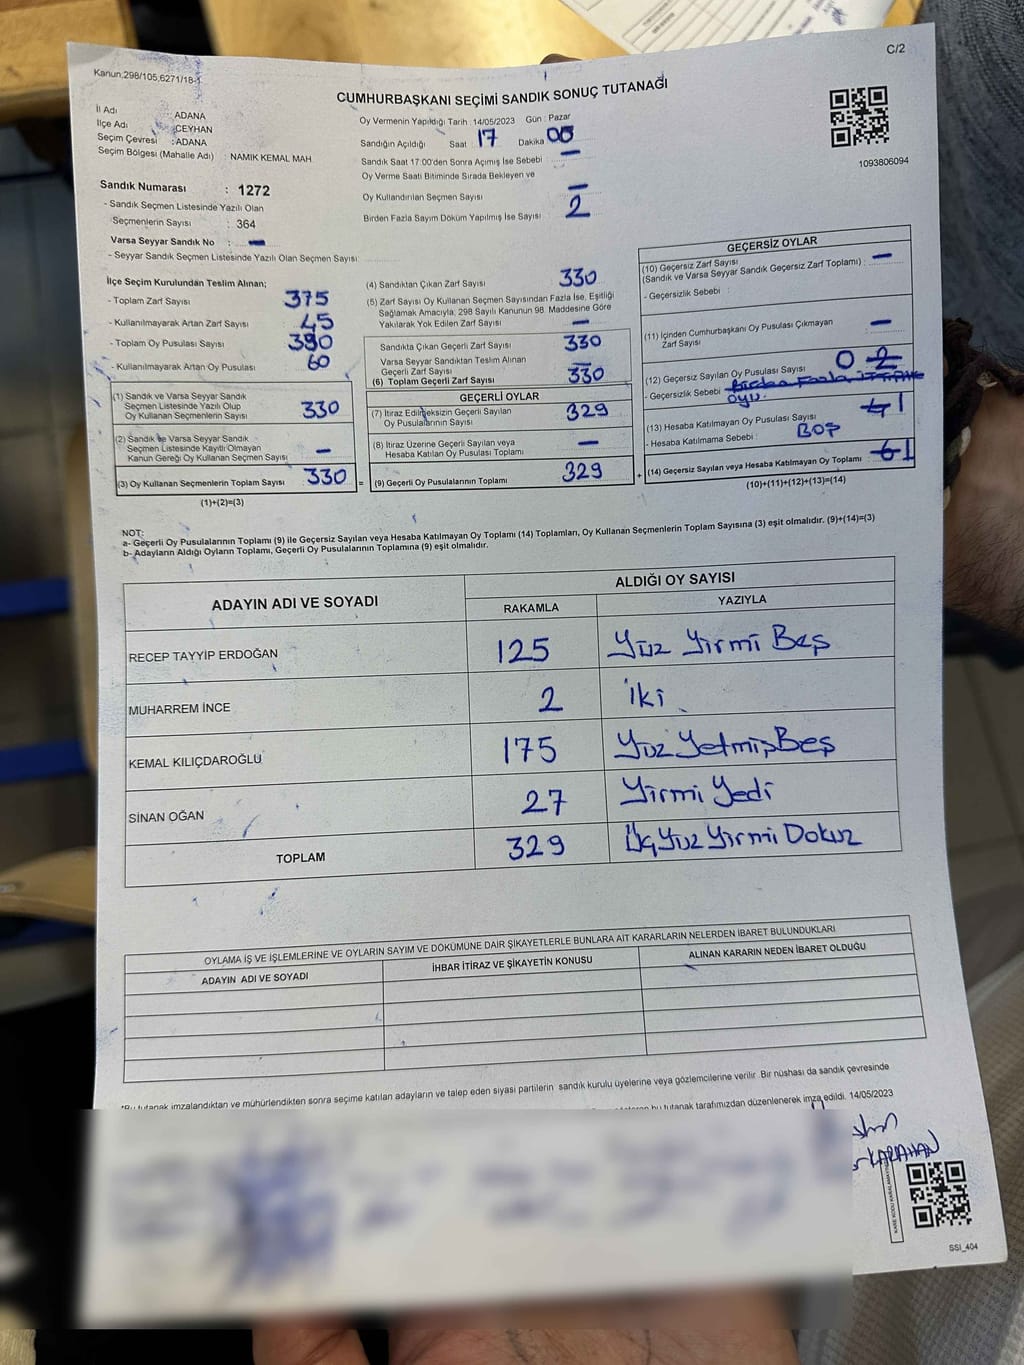 C/2
Kanun.298/105,6271/18-1
CUMHURBAŞKANI SEÇİMİ SANDIK SONUÇ TUTANAĞI
1093806094
İl Adı : ADANA
İlçe Adı : CEYHAN
Seçim Çevresi : ADANA
Seçim Bölgesi (Mahalle Adı) : NAMIK KEMAL MAH
Sandık Numarası : 1272
- Sandık Seçmen Listesinde Yazılı Olan
Seçmenlerin Sayısı : 364
Varsa Seyyar Sandık No : —
- Seyyar Sandık Seçmen Listesinde Yazılı Olan Seçmen Sayısı:
Oy Vermenin Yapıldığı Tarih : 14/05/2023 Gün : Pazar
Sandığın Açıldığı Saat 17 Dakika 00
Sandık Saat 17:00'den Sonra Açımış İse Sebebi : —
Oy Verme Saati Bitiminde Sırada Bekleyen ve
Oy Kullandırılan Seçmen Sayısı —
Birden Fazla Sayım Döküm Yapılmış İse Sayısı 2
İlçe Seçim Kurulundan Teslim Alınan;
- Toplam Zarf Sayısı 375
- Kullanılmayarak Artan Zarf Sayısı 45
- Toplam Oy Pusulası Sayısı 390
- Kullanılmayarak Artan Oy Pusulası 60
(1) Sandık ve Varsa Seyyar Sandık
Seçmen Listesinde Yazılı Olup
Oy Kullanan Seçmenlerin Sayısı 330
(2) Sandık ve Varsa Seyyar Sandık
Seçmen Listesinde Kayıtlı Olmayan
Kanun Gereği Oy Kullanan Seçmen Sayısı —
(3) Oy Kullanan Seçmenlerin Toplam Sayısı 330 =
(1)+(2)=(3)
(4) Sandıktan Çıkan Zarf Sayısı 330
(5) Zarf Sayısı Oy Kullanan Seçmen Sayısından Fazla İse, Eşitliği
Sağlamak Amacıyla, 298 Sayılı Kanunun 98. Maddesine Göre
Yakılarak Yok Edilen Zarf Sayısı —
Sandıkta Çıkan Geçerli Zarf Sayısı 330
Varsa Seyyar Sandıktan Teslim Alınan
Geçerli Zarf Sayısı —
(6) Toplam Geçerli Zarf Sayısı 330
GEÇERLİ OYLAR
(7) İtiraz Edilmeksizin Geçerli Sayılan
Oy Pusulalarının Sayısı 329
(8) İtiraz Üzerine Geçerli Sayılan veya
Hesaba Katılan Oy Pusulası Toplamı —
(9) Geçerli Oy Pusulalarının Toplamı 329 +
GEÇERSİZ OYLAR
(10) Geçersiz Zarf Sayısı —
(Sandık ve Varsa Seyyar Sandık Geçersiz Zarf Toplamı) :
- Geçersizlik Sebebi :
(11) İçinden Cumhurbaşkanı Oy Pusulası Çıkmayan
Zarf Sayısı —
(12) Geçersiz Sayılan Oy Pusulası Sayısı 0 2
- Geçersizlik Sebebi : Birden Fazla
oyu.
(13) Hesaba Katılmayan Oy Pusulası Sayısı 1
- Hesaba Katılmama Sebebi : BOŞ
(14) Geçersiz Sayılan veya Hesaba Katılmayan Oy Toplamı : 1
(10)+(11)+(12)+(13)=(14)
NOT:
a- Geçerli Oy Pusulalarının Toplamı (9) ile Geçersiz Sayılan veya Hesaba Katılmayan Oy Toplamı (14) Toplamları, Oy Kullanan Seçmenlerin Toplam Sayısına (3) eşit olmalıdır. (9)+(14)=(3)
b- Adayların Aldığı Oyların Toplamı, Geçerli Oy Pusulalarının Toplamına (9) eşit olmalıdır.
ADAYIN ADI VE SOYADI ALDIĞI OY SAYISI
RAKAMLA YAZIYLA
RECEP TAYYİP ERDOĞAN 125 Yüz Yirmi Beş
MUHARREM İNCE 2 İki
KEMAL KILIÇDAROĞLU 175 Yüz Yetmiş Beş
SİNAN OĞAN 27 Yirmi Yedi
TOPLAM 329 Üç Yüz Yirmi Dokuz
OYLAMA İŞ VE İŞLEMLERİNE VE OYLARIN SAYIM VE DÖKÜMÜNE DAİR ŞİKAYETLERLE BUNLARA AİT KARARLARIN NELERDEN İBARET BULUNDUKLARI
ADAYIN ADI VE SOYADI İHBAR İTİRAZ VE ŞİKAYETİN KONUSU ALINAN KARARIN NEDEN İBARET OLDUĞU
*Bu tutanak imzalandıktan ve mühürlendikten sonra seçime katılan adayların ve talep eden siyasi partilerin sandık kurulu üyelerine veya gözlemcilerine verilir. Bir nüshası da sandık çevresinde
bu tutanak tarafımızdan düzenlenerek imza edildi. 14/05/2023
KARAHAN
SSİ_404